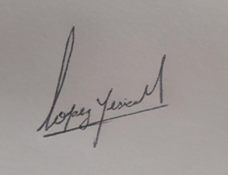 Lopez Yesica M